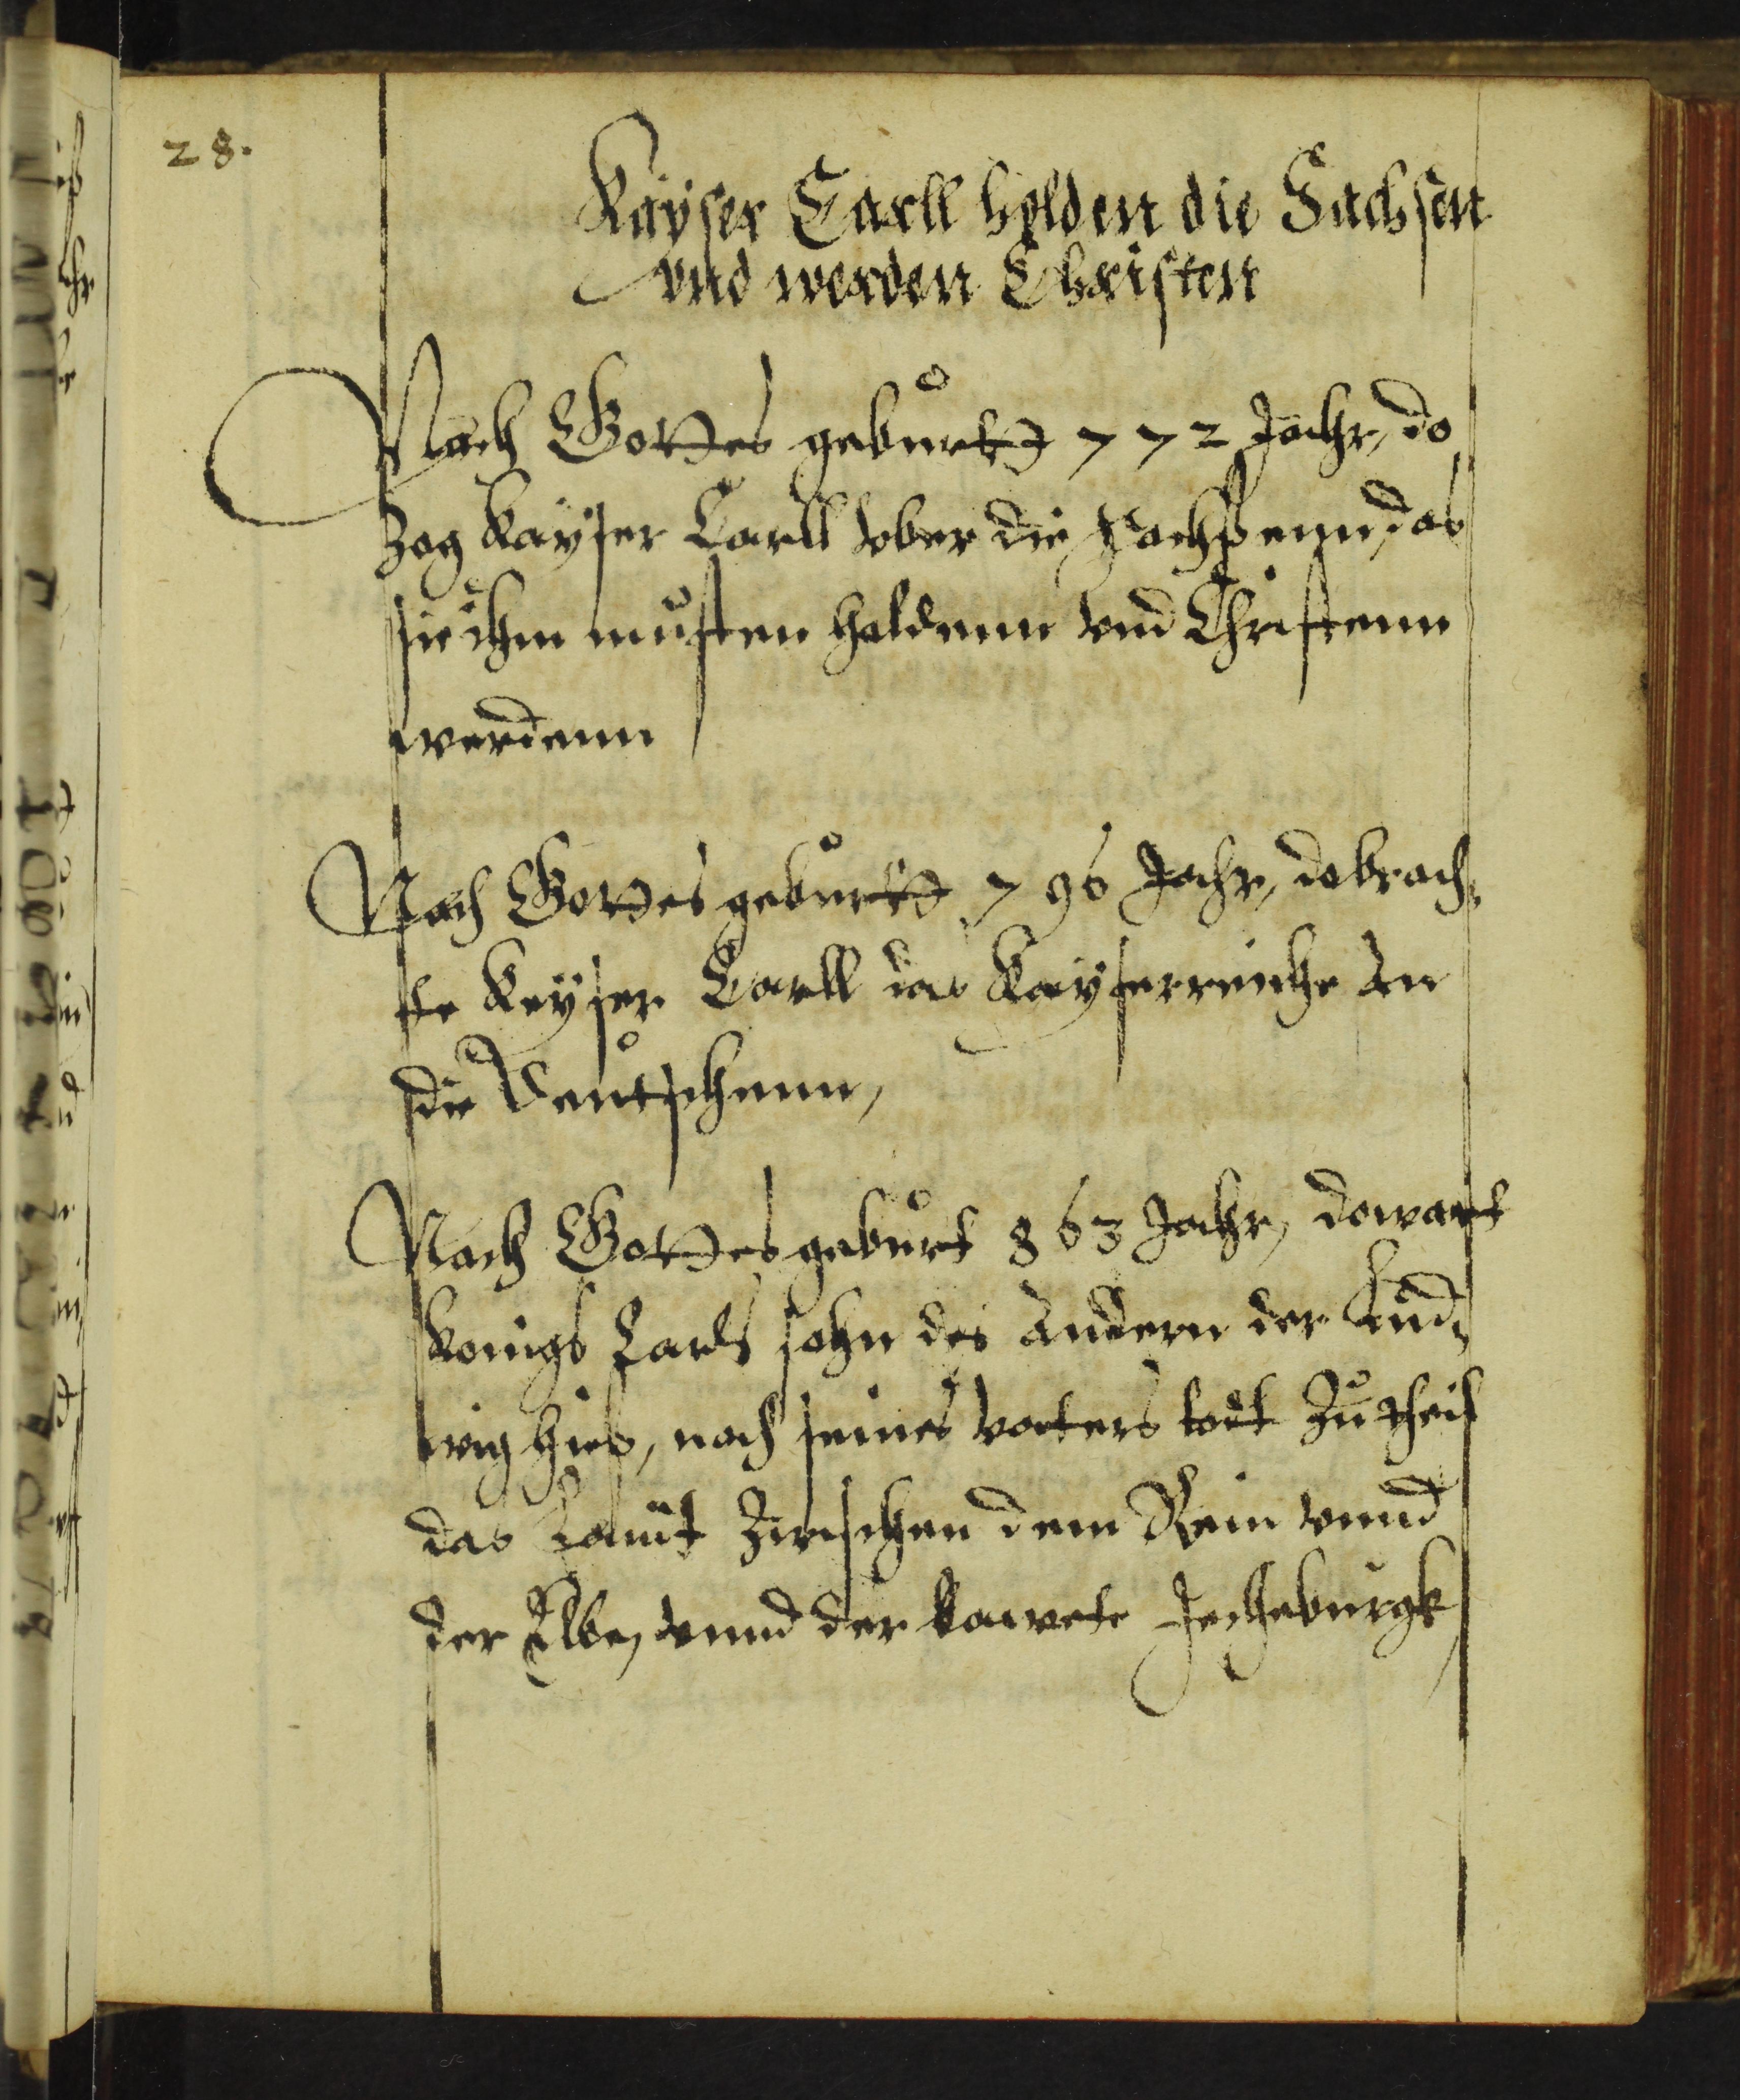 28.
Kayser Carll holden die Sachsen
vnd werden Christen
Nach Gottes geburtt 772 Jahr, do
zog Kayser Carll vber die Sachßenn, das
sie ihm musten holdenn vnd Christenn
werdenn
Nach Gottes geburtt 796 Jahr, do brach
te Keyser Carll das Kayserreiche An
die Deutschenn,
Nach Gottes geburt 863 Jahr, do wart
Konigs Carls sohn des Andern der Lud
wig hies, nach seines vaters todt zu theil
das Landt zwischen dem Rein vnnd
der Elbe, vnnd der bawete Jecheburgk